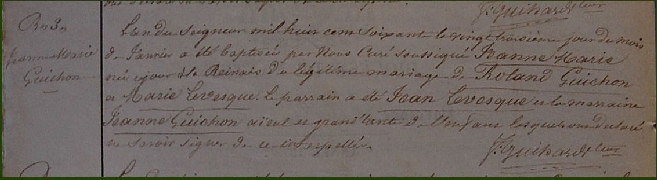 J. Guihard r^teur
B. 3.
Jeanne Marie
Guichon
L'an du Seigneur mil huit cent soixante le vingt troisième jour du mois
de Janvier a été baptisée par Nous Curé soussigné Jeanne Marie
née ce jour du légitime mariage de Roland Guichon
et Marie Levesque. le parrain a été Jean Levesque et la marraine
Jeanne Guichon aieul et grand'tante de l'enfant lesquels ont déclaré
ne savoir signer de ce interpellés.
J. Guihard r^teur